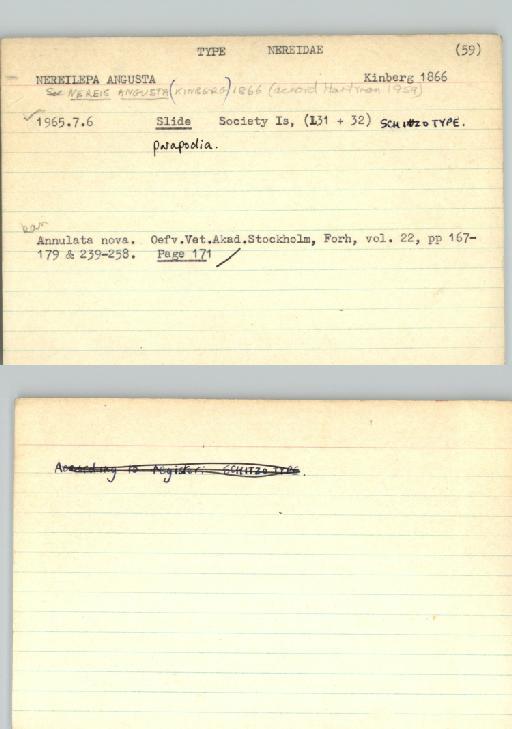 TYPE NEREIDAE (59)
NEREILEPA ANGUSTA Kinberg 1866
See NEREIS ANGUSTA (KINBERG) 1866 (accord Hartman 1959)
1965.7.6 Slide Society Is, (L31 + 32) SCHITZOTYPE.
parapodia.
Annulata nova. Oefv.Vet.Akad.Stockholm, Forh, vol. 22, pp 167-
179 & 239-258. Page 171
According to register: SCHITZOTYPE.